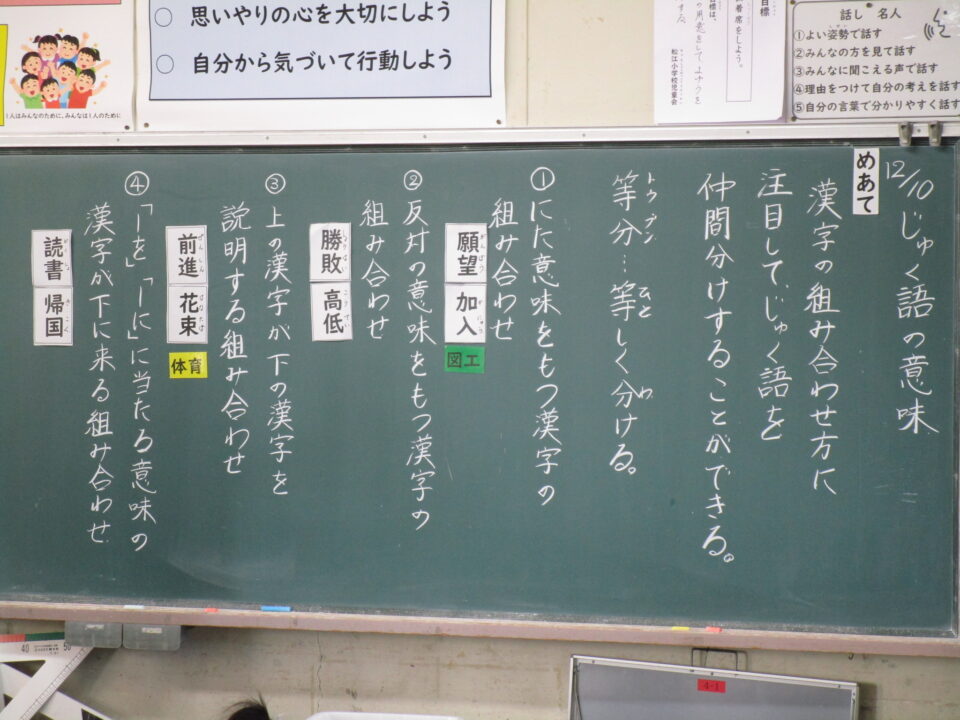 ○ 思いやりの心を大切にしよう
○ 自分から気づいて行動しよう
1人はみんなのために、みんなは1人のために
目標
着席をしよう。
目標は、
松江小学校児童会
話し名人
①よい姿勢で話す
②みんなの方を見て話す
③みんなに聞こえる声で話す
④理由をつけて自分の考えを話す
⑤自分の言葉で分かりやすく話す
12/10 じゅく語の意味
めあて
漢字の組み合わせ方に
注目して、じゅく語を
仲間分けすることができる。
トウブン ひと わ
等分…等しく分ける。
①にた意味をもつ漢字の
組み合わせ
願望 がんぼう
加入 かにゅう
図工
②反対の意味をもつ漢字の
組み合わせ
勝敗 しょうはい
高低 こうてい
③上の漢字が下の漢字を
説明する組み合わせ
前進 ぜんしん
花束 はなたば
体育
④「―を」「―に」に当たる意味の
漢字が下に来る組み合わせ
読書 どくしょ
帰国 きこく
40
50
4-1